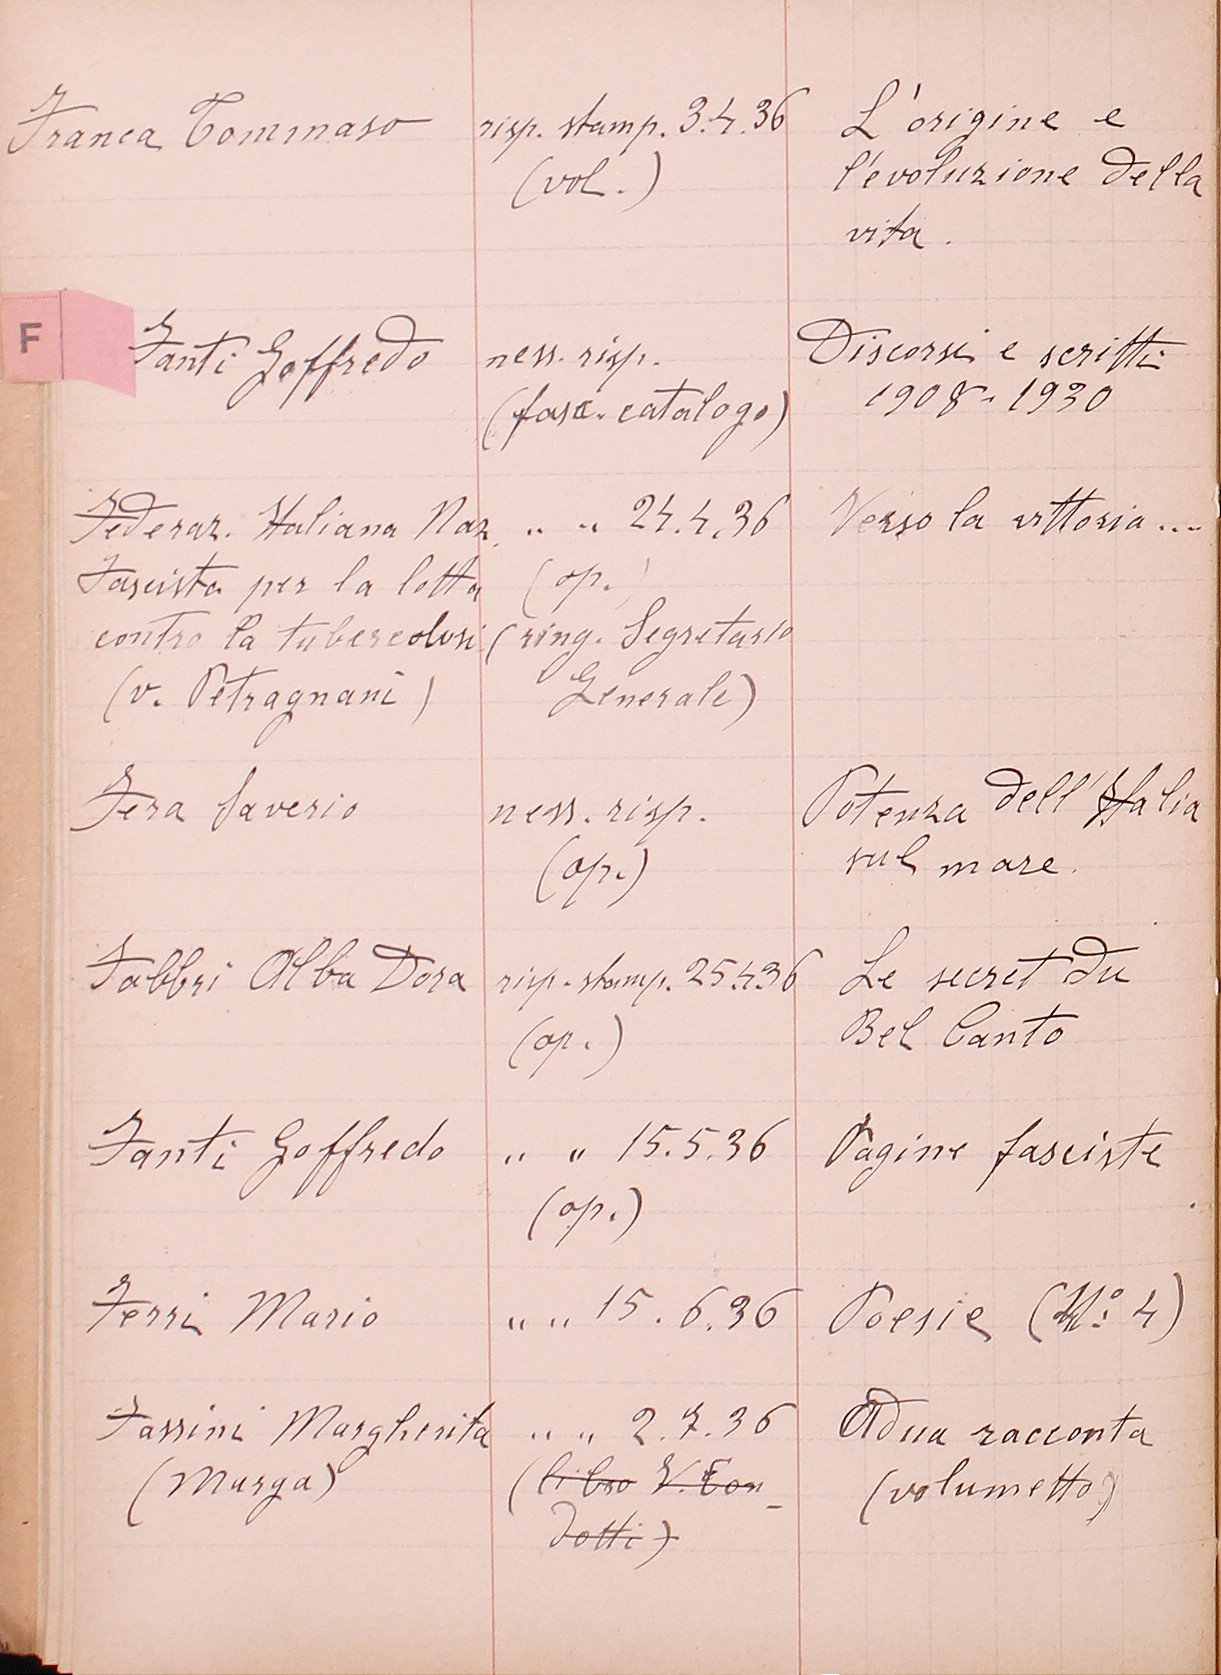 Franca Tommaso risp. stamp. 3.4.36 L'origine e
(vol.) l'evoluzione della
vita.
F
Fanti Goffredo ness. risp. Discorsi e scritti
(fasc. catalogo) 1908-1930
Federaz. Italiana Naz. " " 24.4.36 Verso la vittoria...
Fascista per la lotta (op.)
contro la tubercolosi (ring. Segretario
(v. Petragnani) Generale)
Fera Saverio ness. risp. Potenza dell'Italia
(op.) sul mare.
Fabbri Alba Dora risp. stamp. 25.4.36 Le secret du
(op.) Bel Canto
Fanti Goffredo " " 15.5.36 Pagine fasciste
(op.)
Ferri Mario " " 15.6.36 Poesie (No. 4)
Fassini Margherita " " 2.7.36 Adua racconta
(Marga) (libro V. Con- (volumetto)
dotti)